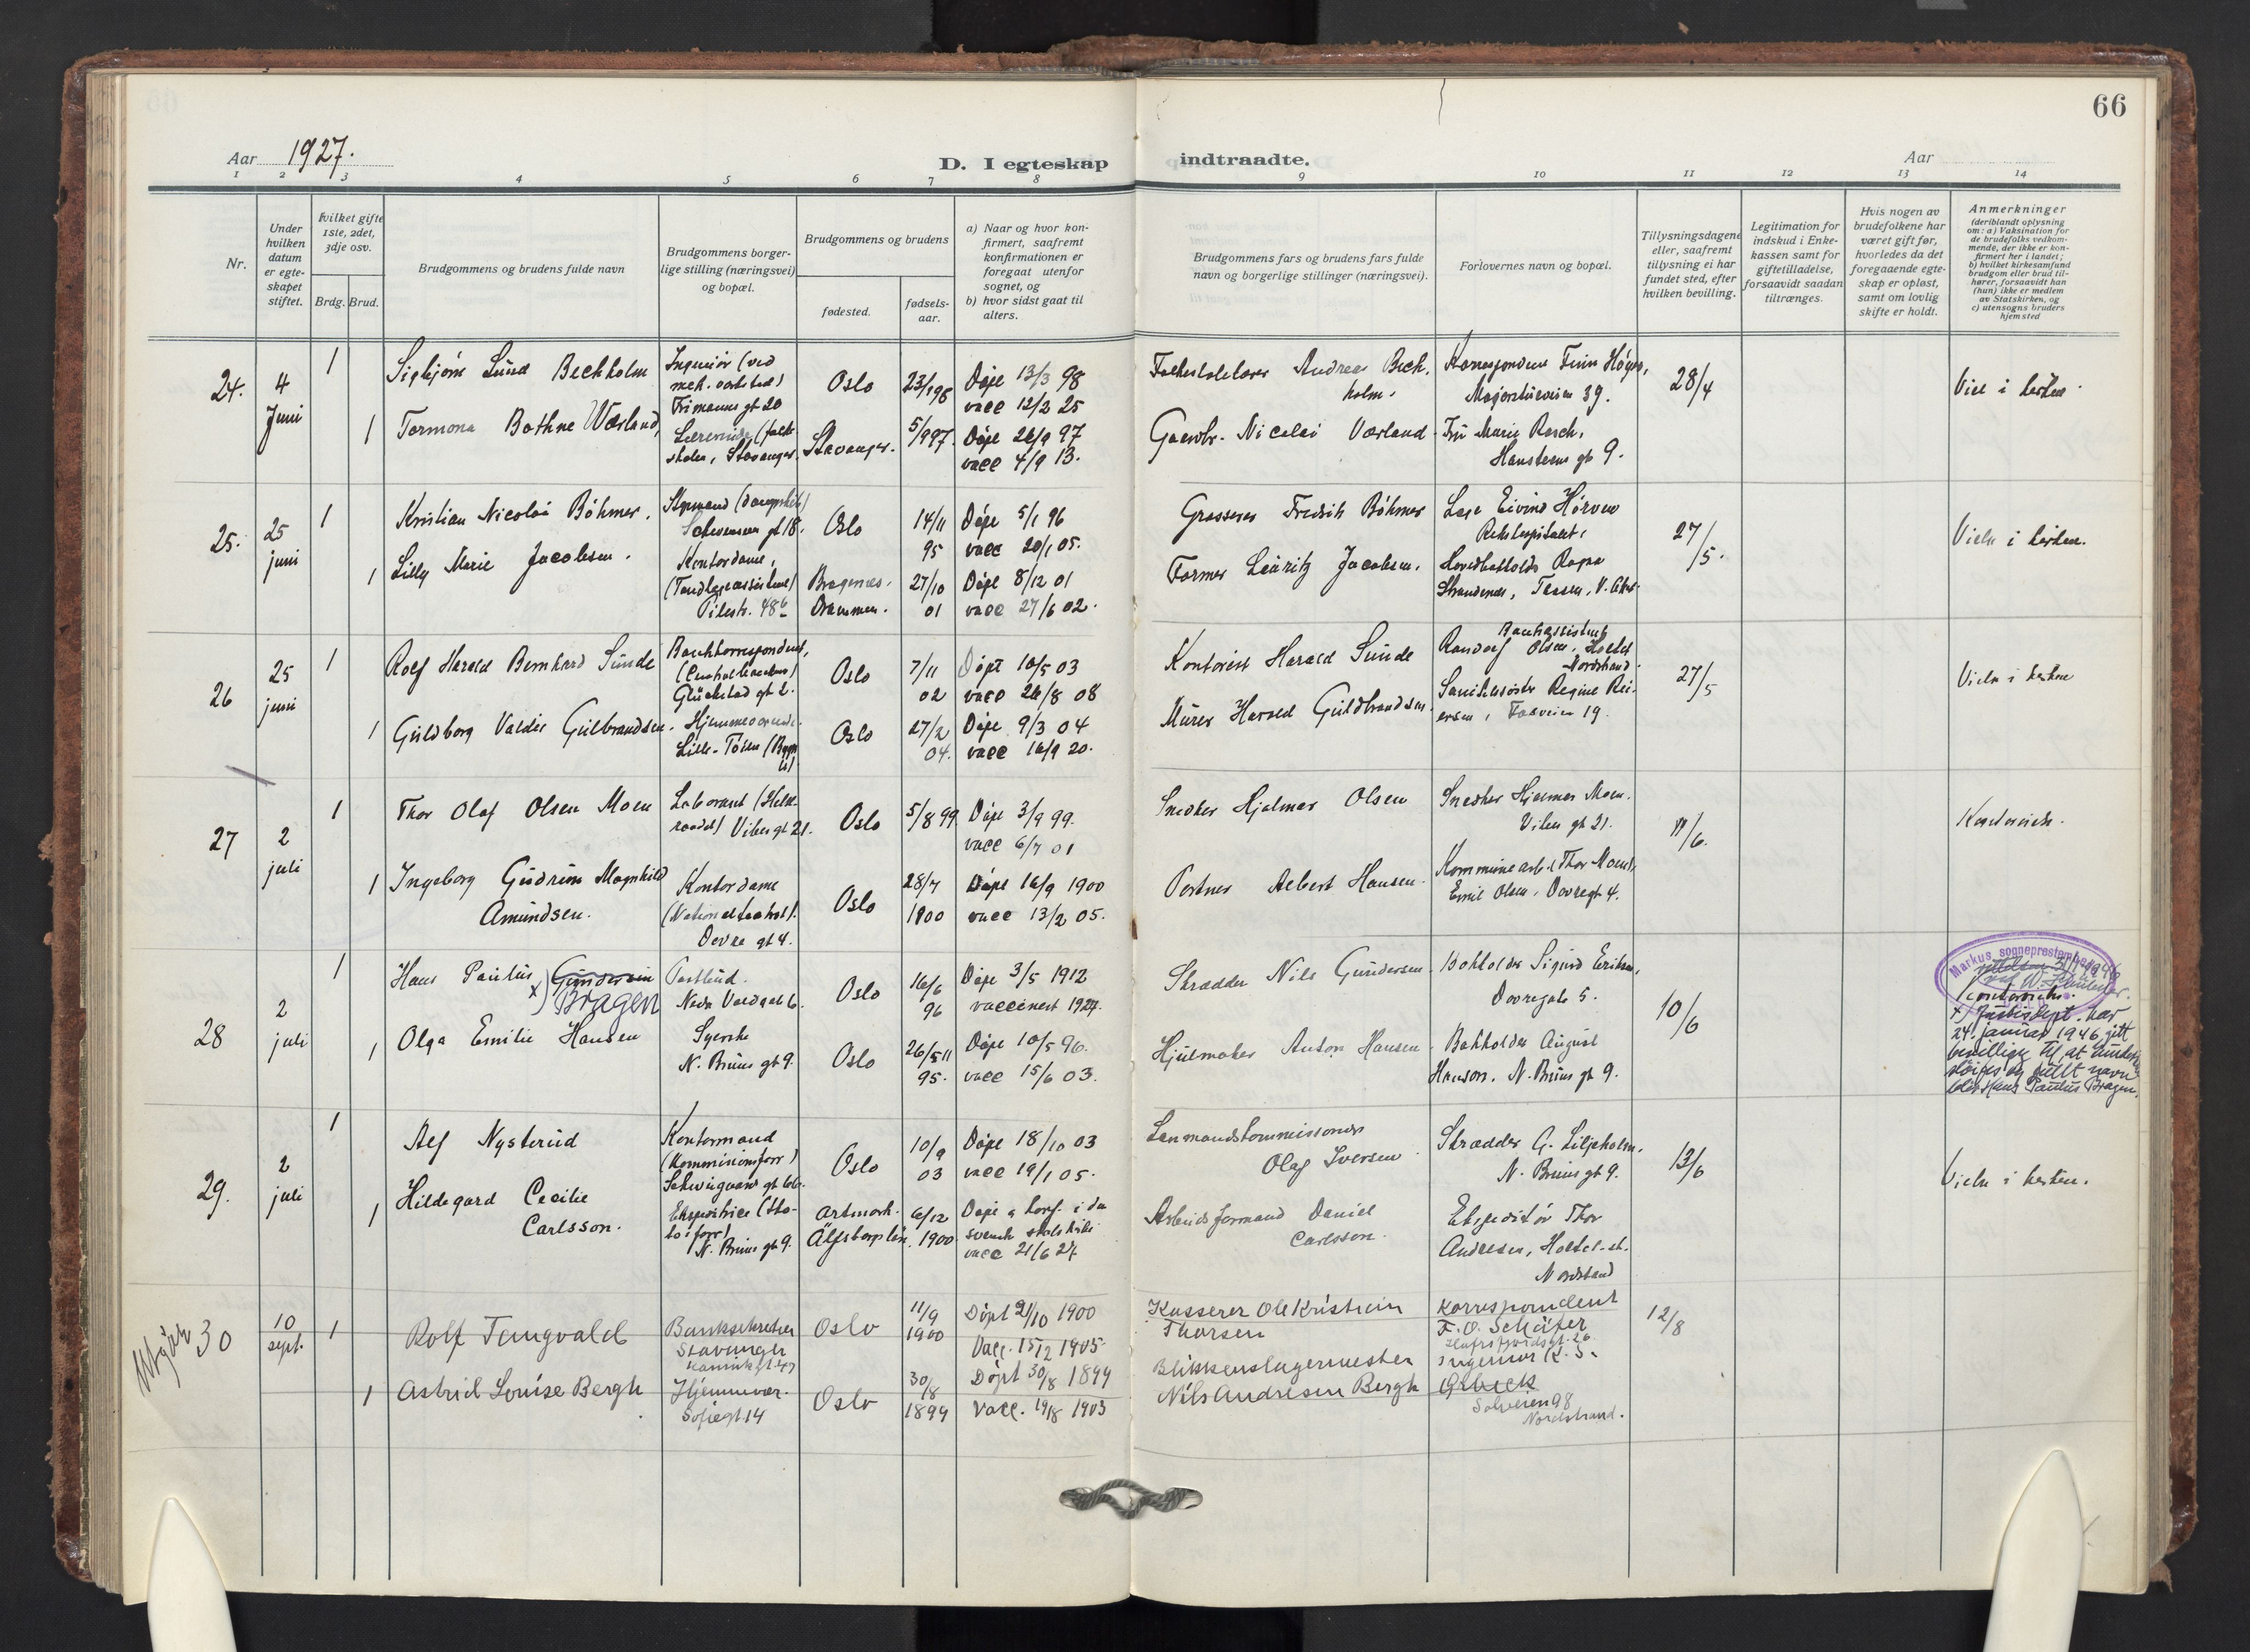 66
Aar 1927.
D. I egteskap indtraadte.
Aar
1 2 3 4 5 6 7 8 9 10 11 12 13 14
Nr.
Under
hvilken
datum
er egte-
skapet
stiftet.
hvilket gifte
1ste, 2det,
3dje osv.
Brdg. Brud.
Brudgommens og brudens fulde navn
Brudgommens borger-
lige stilling (næringsvei)
og bopæl.
Brudgommens og brudens
fødested.
fødsels-
aar.
a) Naar og hvor kon-
firmert, saafremt
konfirmationen er
foregaat utenfor
sognet, og
b) hvor sidst gaat til
alters.
Brudgommens fars og brudens fars fulde
navn og borgerlige stillinger (næringsvei).
Forlovernes navn og bopæl.
Tillysningsdagene
eller, saafremt
tillysning ei har
fundet sted, efter
hvilken bevilling.
Legitimation for
indskud i Enke-
kassen samt for
giftetilladelse,
forsaavidt saadan
tiltrænges.
Hvis nogen av
brudefolkene har
været gift før,
hvorledes da det
foregaaende egte-
skap er opløst,
samt om lovlig
skifte er holdt.
Anmerkninger
(deriblandt oplysning
om: a) Vaksination for
de brudefolks vedkom-
mende, der ikke er kon-
firmert her i landet;
b) hvilket kirkesamfund
brudgom eller brud til-
hører, forsaavidt han
(hun) ikke er medlem
av Statskirken, og
c) utensogns bruders
hjemsted
24.
4
Juni
1
Sigbjørn Lund Bechholm
Ingeniør (ved
mek. verksted)
Frimanns gt 20
Oslo
23/1 98
Døpt 13/3 98
vacc 12/2 25
Andreas Bech-
holm.
Korrespondent Finn Høyer,
Majorstuveien 39.
28/4
Viet i kirken.
1
Tormona BothneVærland,
Lærerinde (folke
skolen, Stavanger.
Stavanger.
5/9 97.
Døpt 26/9 97
vacc 4/9 13.
Gaardbr. Nicolai Værland
Fru Marie Rasch,
Hansteens gt 9.
25.
25
juni
1
Kristian Nicolai Böhmer.
Styrmand (dampskib)
gt 18.
Oslo
14/11
95
Døpt 5/1 96
vacc 20/1 05.
Grosserer Fredrik Böhmer
Læge Eivind
Rikshospitalet,
27/5.
Vielse i kirken.
1
Lilly Marie Jacobsen.
Kontordame,
(Tandlægeassistent)
Pilestr. 48b
Bragernes,
Drammen.
27/10
01
Døpt 8/12 01
vacc 27/6 02.
Former Lauritz Jacobsen.
Ragna
Strandenes, Taasen, V. Aker
26
25
juni
1
Rolf Harald Bernhard Sunde
Bankkorrespondent,
(Centralbanken)
Glückstad gt 2.
Oslo
7/11
02
Døpt 10/5 03
vacc 26/8 08
Kontorist Harald Sunde
Bankassistent
Randolf Olsen, Holtet
Nordstrand.
27/5
Vielse i kirken
1
Guldborg Valdis Gulbrandsen.
Hjemmeværende.
Lille-Tøien
Oslo
27/2
04.
Døpt 9/3 04
vacc 16/9 20.
Murer Harald Guldbrandsen.
Regine Rei-
ersen, 19.
27
2
juli
1
Thor Olaf Olsen Moen
Laborant (Helse
raadet) Vibes gt 21.
Oslo
5/8 99.
Døpt 3/9 99.
vacc 6/7 01
Snedker Hjalmar Olsen
Snedker Hjalmar Moen.
Vibes gt 21.
11/6.
Kontorvielse.
1
Ingeborg Gudrun Magnhild
Amundsen.
Kontordame
(Nationalteatret).
Dovre gt 4.
Oslo
28/7
1900
Døpt 16/9 1900
vacc 13/2 05.
Portner Albert Hansen.
Kommunearb.
Emil Olsen, Dovregt 4.
28
2
juli
1
Hans Paulus x) Gundersen
Bragen
Postbud.
Nedre Voldgate 6.
Oslo
16/6
96
Døpt 3/5 1912
vaccinert 1927.
Skrædder Nils Gundersen
Bokholder Sigurd Eriksen,
Dovregate 5.
10/6
Markus sogneprestembede
Kontorvielse.
x) Justisdept. har
24. januar 1946 gitt
bevilling til at Gundersen
sløifes og fullt navn
blir Hans Paulus Bragen.
1
Olga Emilie Hansen
Syerske
N. Bruns gt 9.
Oslo
26/5
95.
Døpt 10/5 96.
vacc 15/6 03.
Hjulmaker Anton Hansen
Bokholder August
Hanson. N. Bruns gt 9.
29.
2
juli
1
Alf Nysterud
Kontormand
(Kommisionsforr)
Schwigaards gt 66.
Oslo
10/9
03
Døpt 18/10 03
vacc 19/1 05.
Lenmandskommissionær
Olaf Iversen
Skrædder G. Liljeholm.
N. Bruns gt 9.
13/6
Vielse i kirken.
1
Hildegard Cecilie
Carlsson.
Ekspeditrice (Sko-
tøiforr)
N. Bruns gt 9.
Artmark.
Älfsborgs län.
6/12
1900
Døpt & konf. i den
svenske statskirke
vacc 21/6 27.
Arbeidsformand Daniel
Carlsson.
Ekspeditør Thor
Andresen, Holtet st.
Nordstrand
Utgår
30
10
sept.
1
Rolf Tangvald
Banksekretær
Stavanger
Kannikgt. 47
Oslo
11/9
1900
Døpt 21/10 1900
Vacc. 15/12 1905.
Kasserer Ole Kristian
Thorsen
Korrespondent
F. O. Schäfer
Hafrsfjordsgt. 26
12/8
1
Astrid Louise Bergh
Hjemmevær.
Sofiegt. 14
Oslo
30/8
1899
Døpt 30/8 1899
Vacc. 19/8 1903
Blikkenslagermester
Nils Andresen Bergh
Ingeniør K. S.
Solveien 98
Nordstrand.